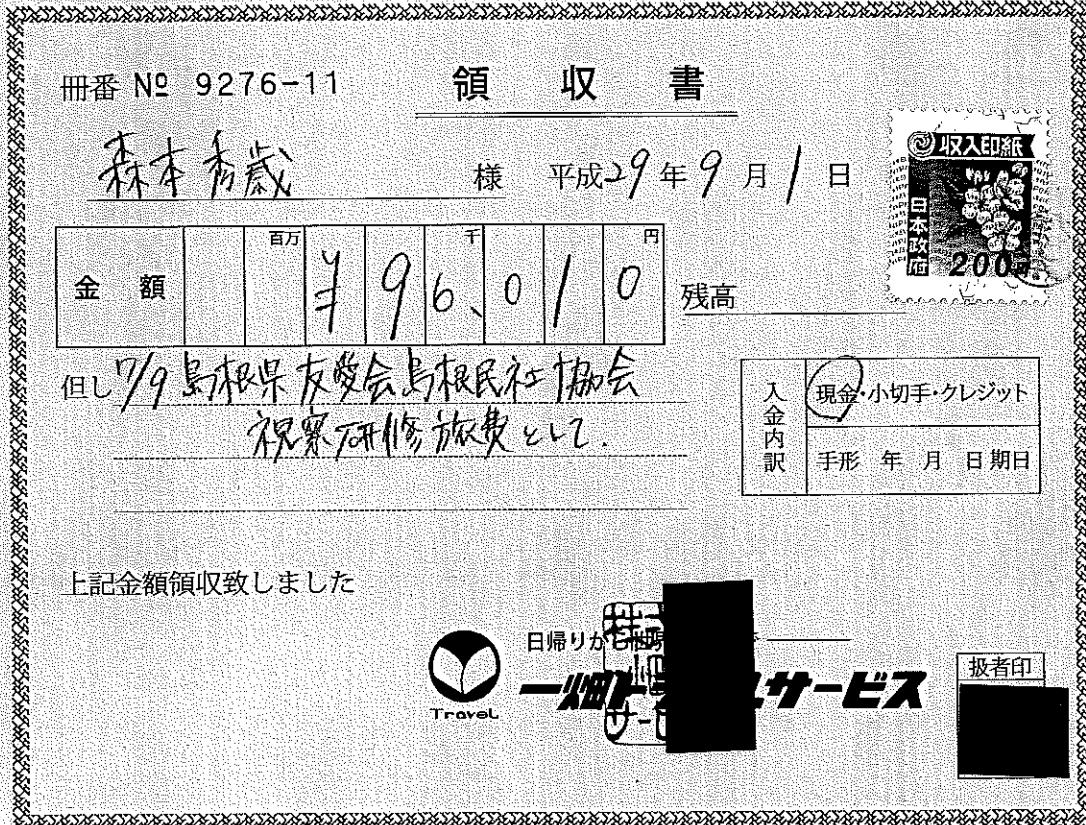 冊番 Nº 9276-11
領収書
森本秀歳 様 平成29年9月1日
収入印紙
日本政府
200円
金額 百万 千 円
¥96,010
残高
但し 9/9 島根県友愛会島根民社協会
視察研修旅費として.
入金内訳
現金・小切手・クレジット
手形 年 月 日期日
上記金額領収致しました
日帰りか
Travel
一畑ト サービス
扱者印